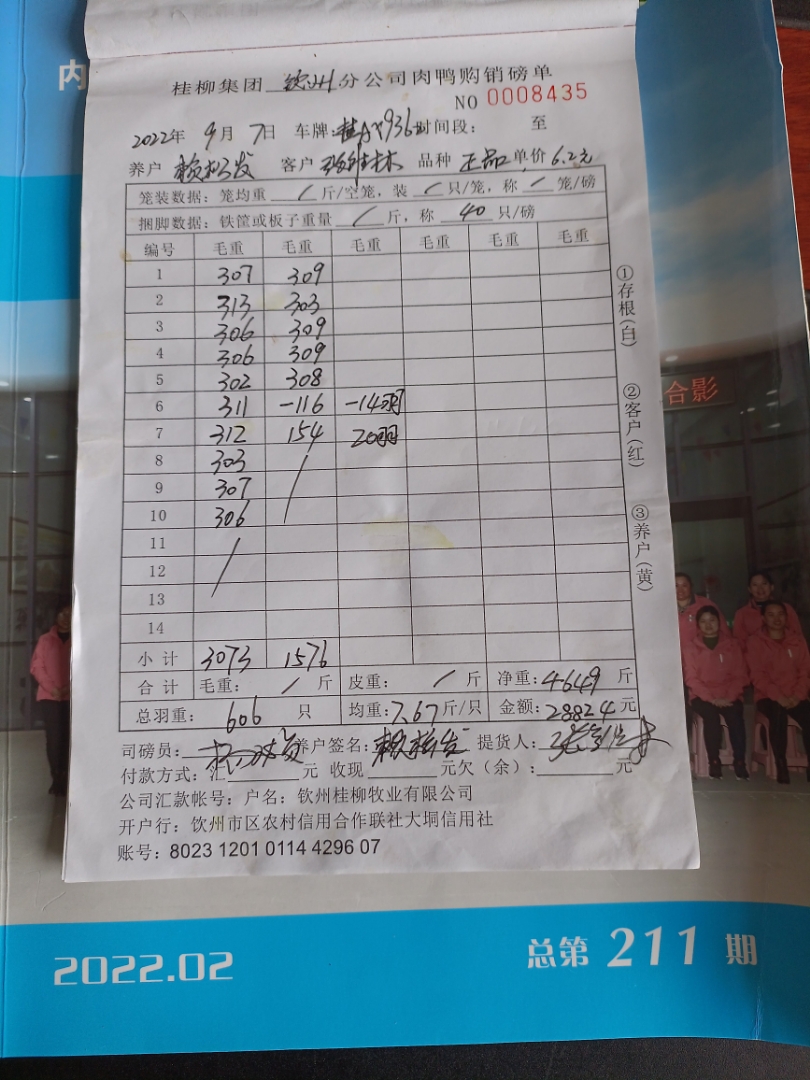 内
桂柳集团 钦州 分公司肉鸭购销磅单
NO 0008435
2022年 9月 7日 车牌: 时间段: 至
养户 客户 品种 正品 单价 6.2元
笼装数据: 笼均重 / 斤/空笼, 装 / 只/笼, 称 / 笼/磅
捆脚数据: 铁筐或板子重量 / 斤, 称 40 只/磅
编号 毛重 毛重 毛重 毛重 毛重 毛重
1 307 309
2 313 303
3 306 309
4 306 309
5 302 308
6 311 -116 -14羽
7 312 154 20羽
8 303 /
9 307
10 306
11 /
12
13
14
小计 3073 1576
合计 毛重: / 斤 皮重: / 斤 净重: 4649 斤
总羽重: 606 只 均重: 7.67 斤/只 金额: 28824 元
司磅员: 养户签名: 提货人:
付款方式: 汇 元 收现 元欠(余): 元
公司汇款帐号: 户名: 钦州桂柳牧业有限公司
开户行: 钦州市区农村信用合作联社大垌信用社
账号: 8023 1201 0114 4296 07
①存根(白)
②客户(红)
③养户(黄)
合影
2022.02
总第 211 期